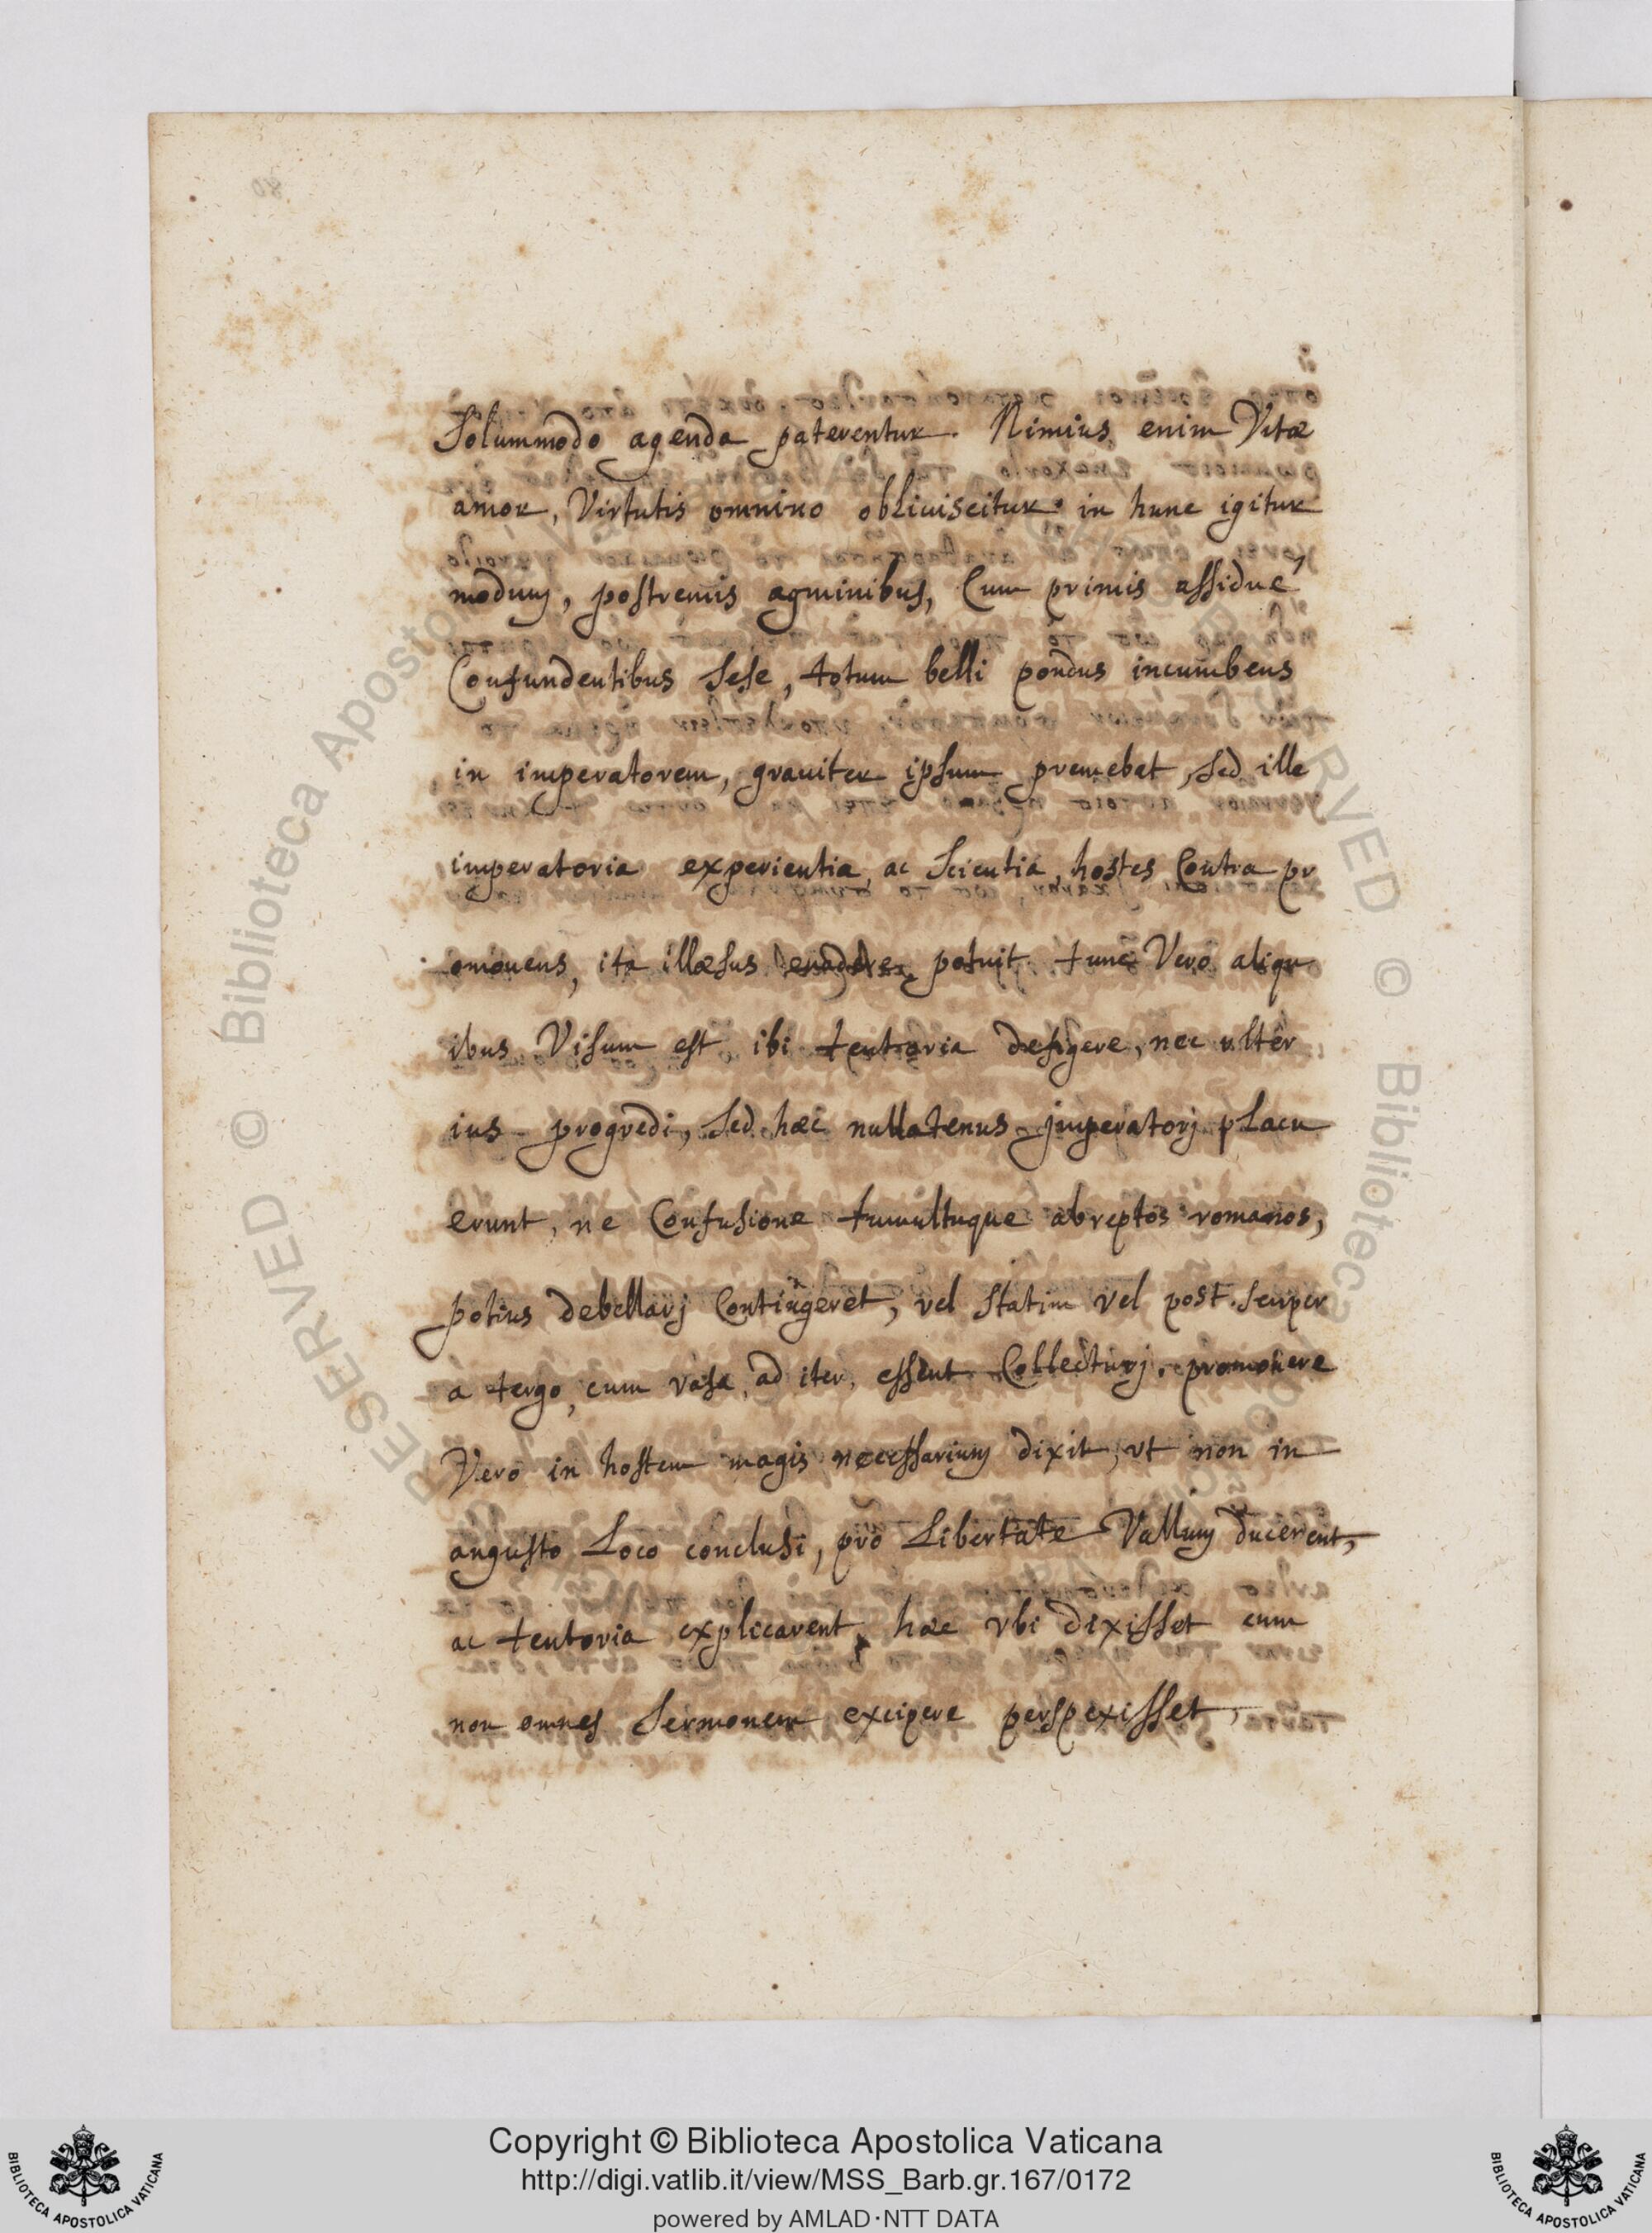 Solummodo agenda paterentur. Nimius enim Vitæ
amor, Virtutis omnino obliuiscitur. in hunc igitur
modum, postremis agminibus, Cum primis assidué
Confundentibus sese, totum belli pondus incumbens
in imperatorem, grauiter ipsum premebat, sed ille
imperatoria experientia, ac Scientia, hostes Contra pr
omouens, ita illæsus euadere potuit. tunc Vero aliqu
ibus Visum est ibi tentoria defigere, nec ulter
ius progredi, sed hæc nullatenus imperatorj placu
erunt, ne Confusione tumultuque abreptos romanos,
potius debellarj Contingeret, vel statim vel post. semper
a tergo, cum vasa, ad iter, essent Collecturj. promouere
Vero in hostem magis necessarium dixit, vt non in
angusto Loco conclusi, pro Libertate Vallum ducerent,
ac tentoria explicarent, hæc vbi dixisset cum
non omnes Sermonem excipere perspexisset,
80
RESERVED © Biblioteca Apostolica Vaticana
Copyright © Biblioteca Apostolica Vaticana
http://digi.vatlib.it/view/MSS_Barb.gr.167/0172
powered by AMLAD·NTT DATA
BIBLIOTECA APOSTOLICA VATICANA
BIBLIOTECA APOSTOLICA VATICANA